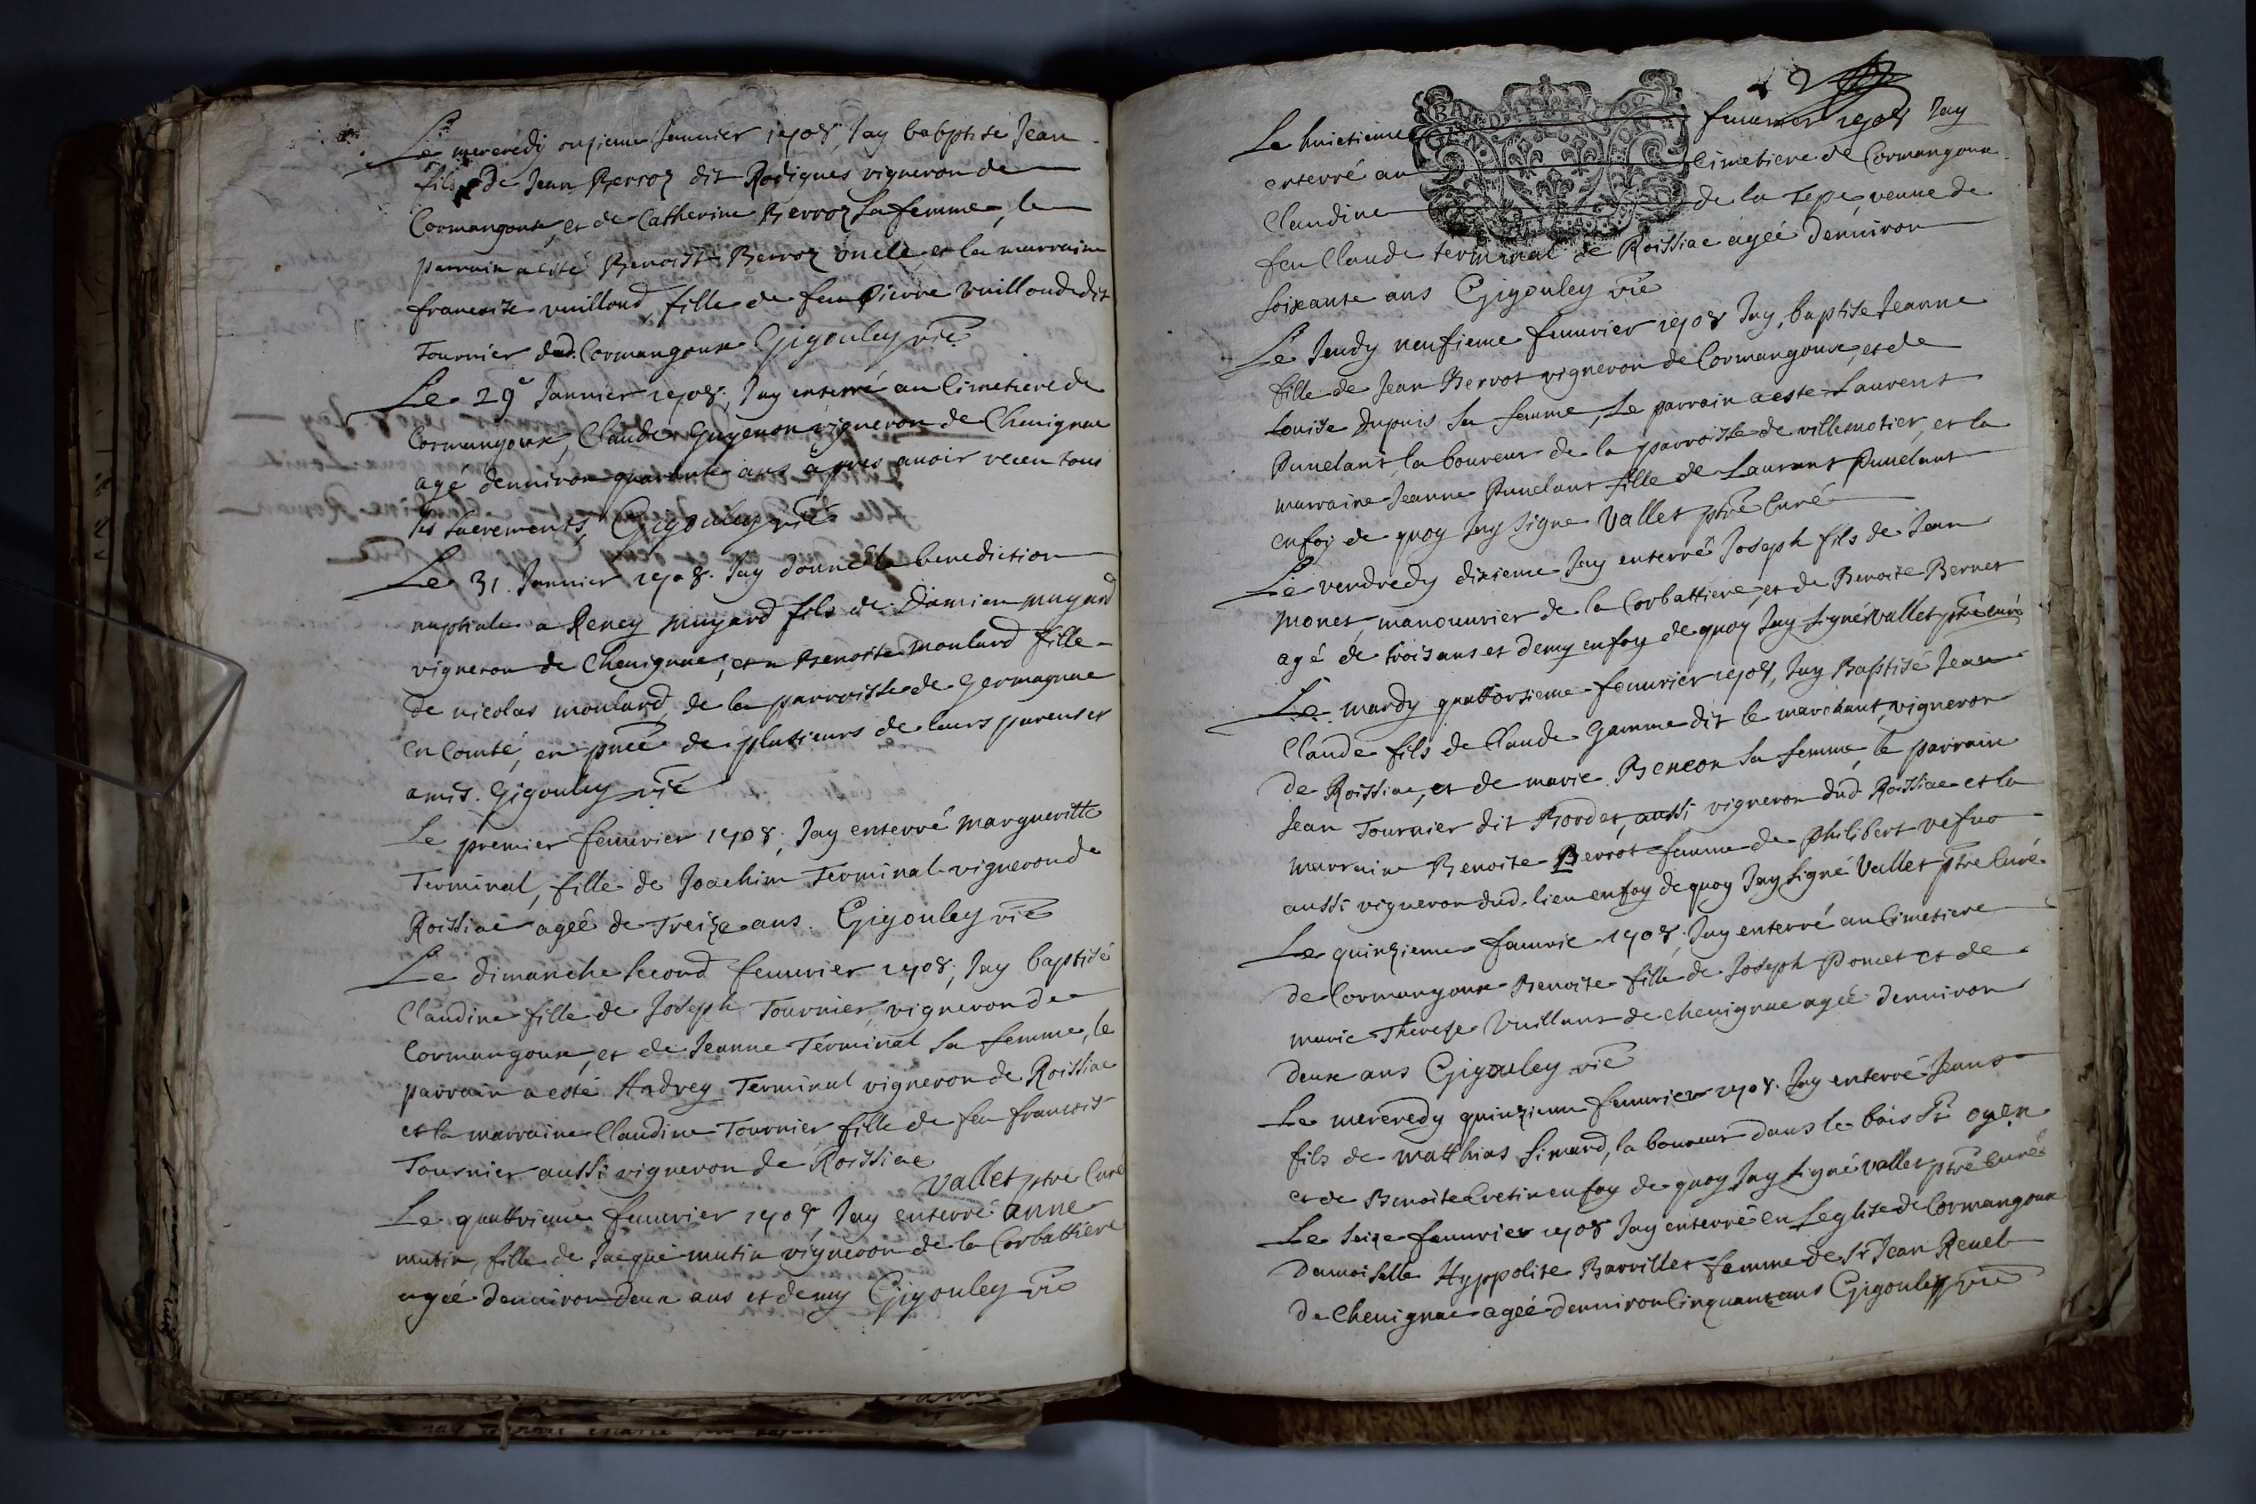 Le mercredy onzieme Jannier 1708, Jay babptisé Jean
fils de Jean Berroz dit Rodigues vigneron de
Cormangoux, et de Catherine Berroz sa femme, le
parrain a esté Benoist Berroz oncle, et la marraine
francoise vuilloud, fille de feu pierre vuilloud dit
Tournier dud. Cormangoux Gigouley vic
Le 29e Jannier 1708, Jay enterré au Cimetiere de
Cormangoux, Claude Guyenon vigneron de Chevignac
agé denuiron quarante ans apres auoir receu tous
les sacrements, Gigouley vic
Le 31. Jannier 1708. Jay donné la benediction
nuptiale a Reney muyard fils de Damien muyard
vigneron de Chevignac, et a Benoite moulard fille
de nicolas moulard, de la parroisse de Germagnae
en Comté, en pnce de plusieurs de leurs parens et
amis. Gigouley vic
Le premier feuurier 1708, Jay enterré margueritte
Terminal, fille de Joachim Terminal vigneron de
Roissiac agéé de Treize ans. Gigouley vic
Le dimanche second feuurier 1708, Jay baptisé
Claudine fille de Joseph Tournier, vigneron de
Cormangoux, et de Jeanne Terminal sa femme, le
parrain a esté Andrey Terminal vigneron de Roissiac
et la marraine Claudine Tournier fille de feu francois
Tournier aussi vigneron de Roissiac
Vallet ptre Curé
Le quattrieme feuurier 1708, Jay enterré anne
mutin, fille de Jacque mutin vigneron de la Corbattiere
agéé denuiron deux ans et demy Gigouley vic
2
Le huictieme feuurier 1708 Jay
enterré au Cimetiere de Cormangoux
Claudine de la Tepe, veuue de
feu Claude terminal de Roissiac agéé denuiron
soixante ans Gigouley vic
Le Jeudy neufieme feuurier 1708 Jay, baptise Jeanne
fille de Jean Berrot vigneron de Cormangoux, et de
Louise Dupuis sa femme, Le parrain a este Laurent
Punelant, laboureur de la parroisse de villemotier, et la
marraine Jeanne Punelant fille de Laurent Punelant
enfoy de quoy Jay signe Vallet ptre Curé
Le vendredy dixieme Jay enterré Joseph fils de Jean
Monet, manouurier de la Corbattiere, et de Benoite Bernet
agé de trois ans et demy enfoy de quoy Jay signé Vallet ptre curé
Le mardy quattorzieme feuurier 1708, Jay Baptisé Jean
Claude fils de Claude Gamme dit le marchant, vigneron
de Roissiac, et de marie Bencon sa femme, le parrain
Jean Tournier dit Bordet, aussi vigneron dud. Roissiac et la
marraine Benoite Berrot femme de philibert vefuo
aussi vigneron dud. lieu enfoy de quoy Jay signé Vallet ptre Curé
Le quinzieme feuurie 1708, Jay enterré au Cimetiere
de Cormangoux Benoite fille de Joseph Poncet et de
marie Therese Vuillant de chevignac agéé denuiron
deux ans Gigouley vic
Le mercredy quinzieme feuurier 1708. Jay enterré Jeans
fils de Matthias Simard, laboureur dans le bois St oyen
et de Benoite Cretin enfoy de quoy Jay signé vallet ptre Curé
Le seize feuurier 1708 Jay enterré en Leglise de Cormangoux
Damoiselle Hyppolite Barvillet femme de Sr Jean Revel
de Chevignac agéé denuiron Cinquante ans Gigouley vic